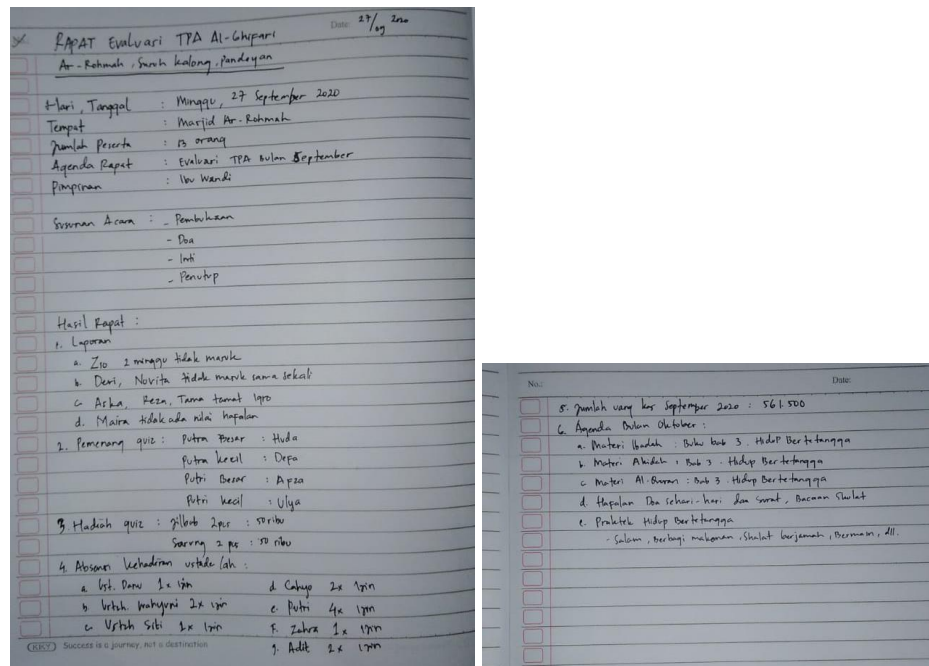 Date: 27/09 2020
RAPAT Evaluasi TPA Al-Ghifari
Ar-Rohmah, Saruh kalong, pandeyan
Hari, Tanggal : Minggu, 27 September 2020
Tempat : Masjid Ar-Rohmah
Jumlah Peserta : 13 orang
Agenda Rapat : Evaluasi TPA Bulan September
Pimpinan : Ibu Wandi
Susunan Acara : - Pembukaan
- Doa
- Inti
- Penutup
Hasil Rapat :
1. Laporan
a. Zio 2 minggu tidak masuk
b. Devi, Novita tidak masuk sama sekali
c. Aska, Reza, Tama tamat Iqro
d. Maira tidak ada nilai hafalan
2. Pemenang quiz : Putra Besar : Huda
Putra kecil : Defa
Putri Besar : Apza
Putri kecil : Ulya
3 Hadiah quiz : jilbab 2pcs : 50 ribu
Sarung 2 pcs : 50 ribu
4. Absensi kehadiran ustadz/ah :
a. Ust. Danu 1x izin
b. Ustzh. Wahyuni 2x izin
c. Ustzh Siti 1x izin
d. Cahyo 2x izin
e. Putri 4x izin
f. Zahra 1x izin
g. Adit 2x izin
KIKY Success is a journey, not a destination
No.: Date:
5. Jumlah uang kas September 2020 : 561.500
6. Agenda Bulan Oktober :
a. Materi Ibadah : Buku bab 3. Hidup Bertetangga
b. Materi Akidah : Bab 3 - Hidup Bertetangga
c. Materi Al-Quran : Bab 3 - Hidup Bertetangga
d. Hafalan Doa sehari-hari dan Surat, Bacaan Sholat
e. Praktek Hidup Bertetangga
- Salam, Berbagi makanan, Shalat berjamah, Bermain, dll.